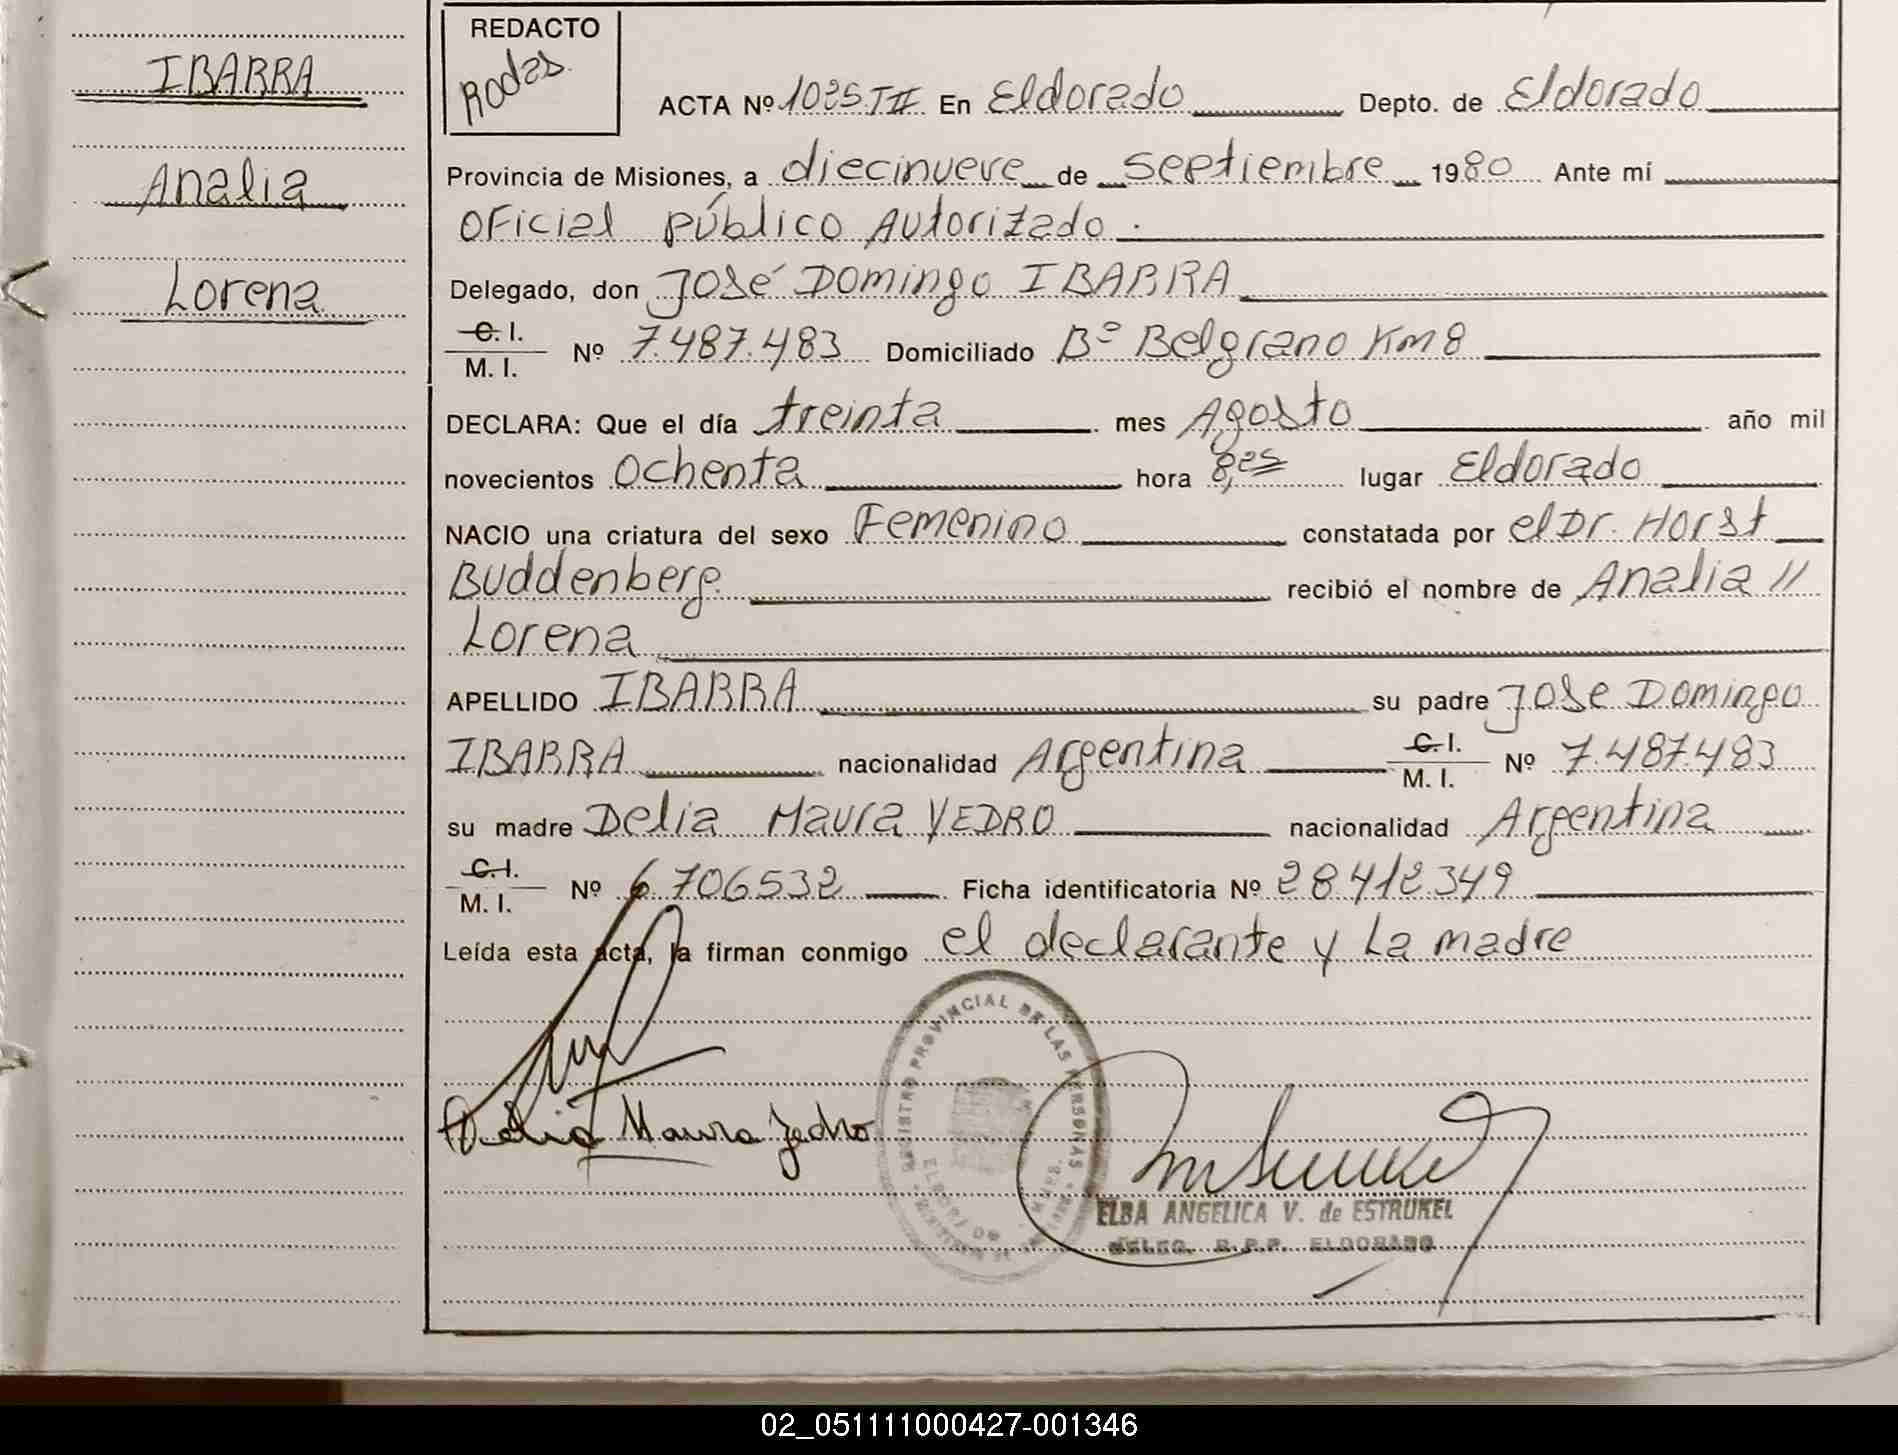 IBARRA
Analia
Lorena
REDACTO
Rodas
ACTA Nº 1025 TII En Eldorado Depto. de Eldorado
Provincia de Misiones, a diecinueve de septiembre 1980 Ante mí
oficial público Autorizado.
Delegado, don José Domingo IBARRA
C. I. / M. I. Nº 7.487.483 Domiciliado Bº Belgrano Km 8
DECLARA: Que el día treinta mes Agosto año mil
novecientos ochenta hora 8,es lugar Eldorado
NACIO una criatura del sexo Femenino constatada por el Dr. Horst
Buddenberg. recibió el nombre de Analia //
Lorena
APELLIDO IBARRA su padre Jose Domingo
IBARRA nacionalidad Argentina C. I. / M. I. Nº 7.487.483
su madre Delia Maura VEDRO nacionalidad Argentina
C. I. / M. I. Nº 6.706532 Ficha identificatoria Nº 28.412.349
Leída esta acta, la firman conmigo el declarante y La madre
Delia Maura Vedro
REGISTRO PROVINCIAL DE LAS PERSONAS
ELBA ANGELICA V. de ESTRUKEL
DELEG. R.P.P. ELDORADO
02_051111000427-001346